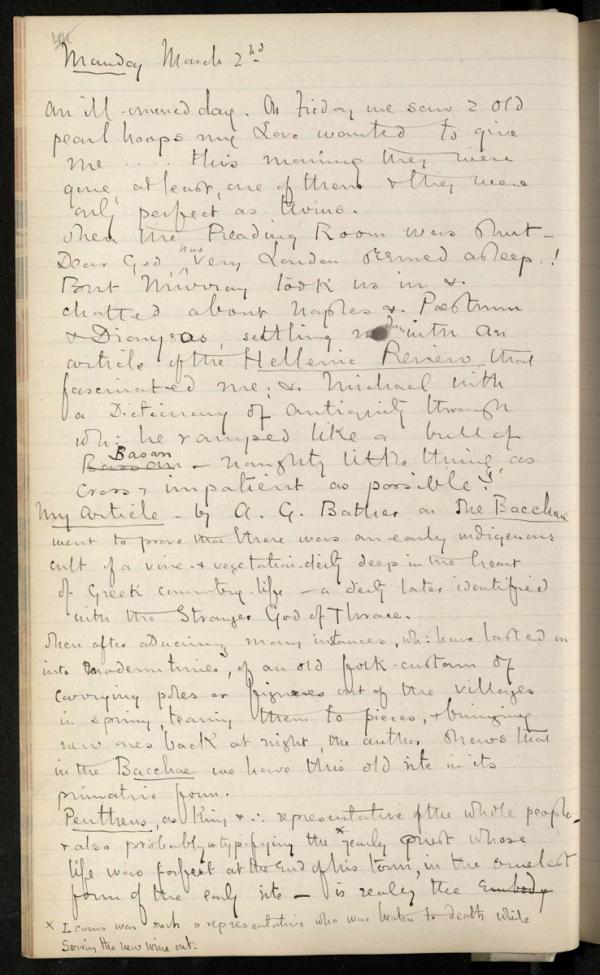 Monday March 2nd
An ill-omened day. On Friday we saw 2 old
pearl hoops my Love wanted to give
me .... this morning they were
gone, at least, one of them & they were
only perfect as twins.
Then the Reading Room was shut –
Dear God, has very London seemed asleep.!
But Murray took us in &
chatted about Naples & Paestum
& Dionysos, settling me down with an
article of the Hellenic Review that
fascinated me; & Michael with
a Dictionary of antiquity through
wh: he ramped like a bull of
Basan
Bassan – naughty little thing, as
cross & impatient as possible!
My article – by A. G. Bather on The Bacchae
went to prove that there was an early indigenous
cult of a vine & vegetation-deity deep in the heart
of Greek country-life – a deity later identified
with the Stranger God of Thrace.
Then after adducing many instances, wh: have lasted on
into modern times, of an old folk-custom of
carrying poles or figures out of the villages
in spring, tearing them to pieces, & bringing
new ones back at night, the author shews that
in the Bacchae we have this old rite in its
primative form.
Pentheus, as King & ∴ representative of the whole people –
& also probably as typifying the x yearly priest whose
life was forfeit at the end of his term, in the cruelest
form of the early rite – is really the Embody
x Icarus was such a representative who was beaten to death while
serving the new wine out.